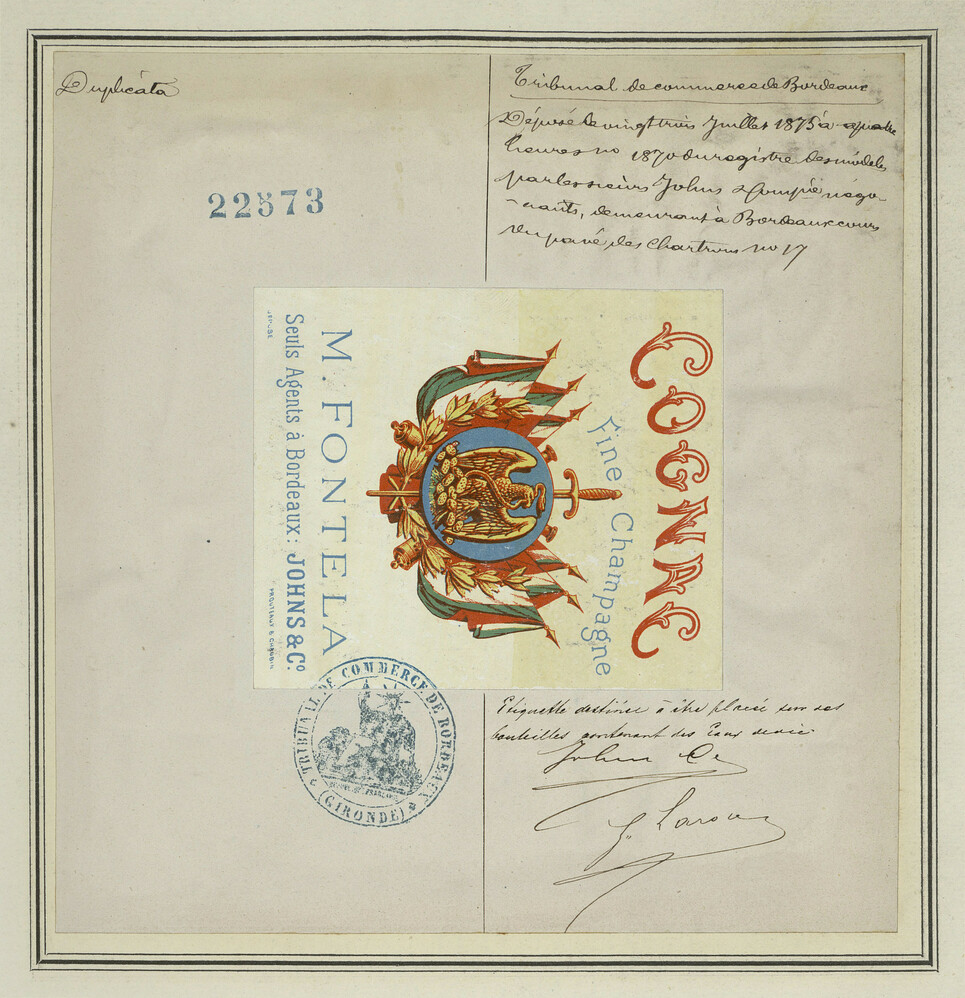 Duplicata
22573
Tribunal de commerce de Bordeaux
Déposé le vingt trois Juillet 1875 à quatre
heures no 1870 du registre des modèles
par les sieurs Johns & Compie négo-
-ciants, demeurant à Bordeaux cours
du pavé des Chartrons no 17
COGNAC
Fine Champagne
M. FONTELA
Seuls Agents à Bordeaux: JOHNS & Co
DÉPOSÉ
TRIBUNAL DE COMMERCE DE BORDEAUX
(GIRONDE)
Etiquette destinée à être placée sur des
bouteilles contenant des Eaux de vie.